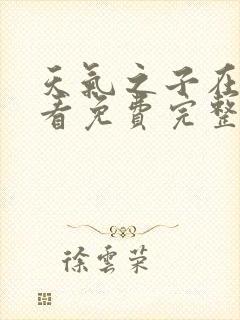 天氣之子在
看免費完整
徐雲榮